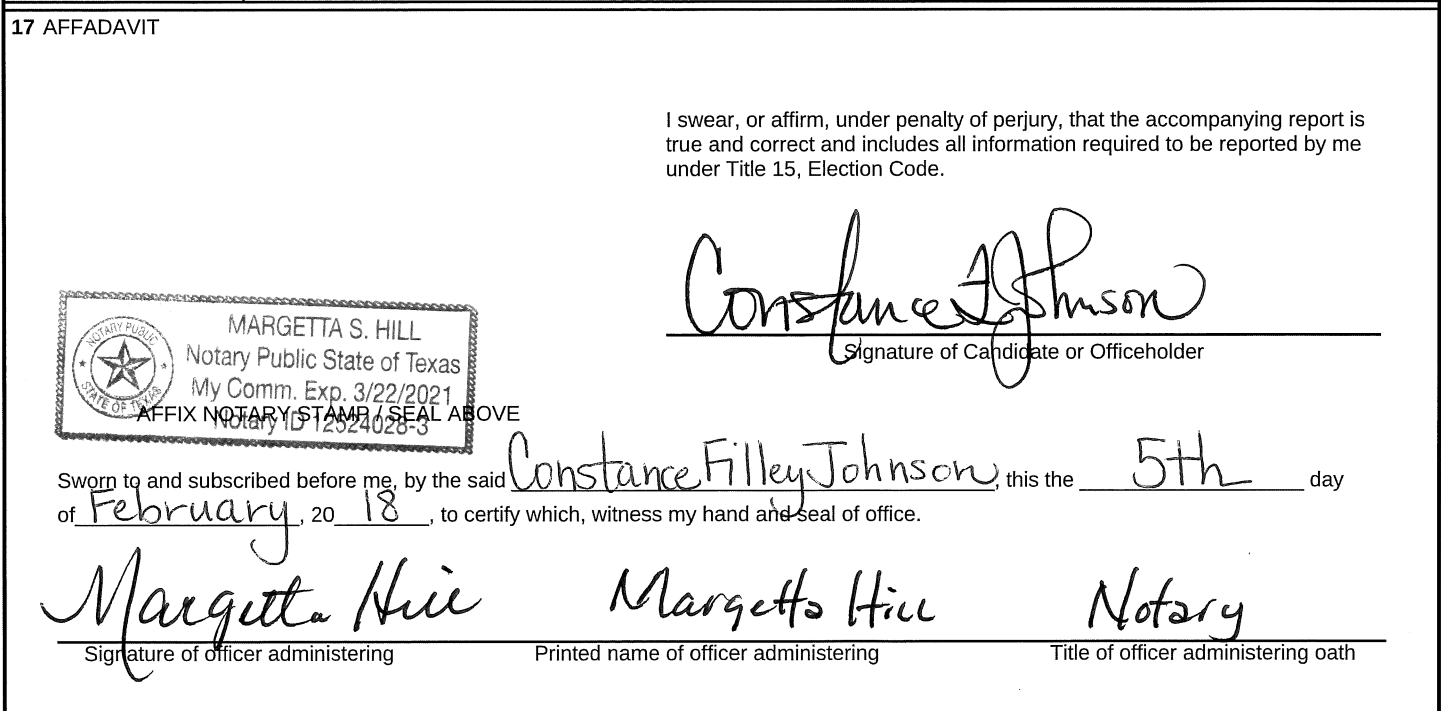 17 AFFADAVIT
I swear, or affirm, under penalty of perjury, that the accompanying report is
true and correct and includes all information required to be reported by me
under Title 15, Election Code.
Constance F Johnson
Signature of Candidate or Officeholder
NOTARY PUBLIC
STATE OF TEXAS
MARGETTA S. HILL
Notary Public State of Texas
My Comm. Exp. 3/22/2021
Notary ID 12524028-3
AFFIX NOTARY STAMP / SEAL ABOVE
Sworn to and subscribed before me, by the said Constance Filley Johnson, this the 5th day
of February, 20 18, to certify which, witness my hand and seal of office.
Margetta Hill Margetta Hill Notary
Signature of officer administering Printed name of officer administering Title of officer administering oath